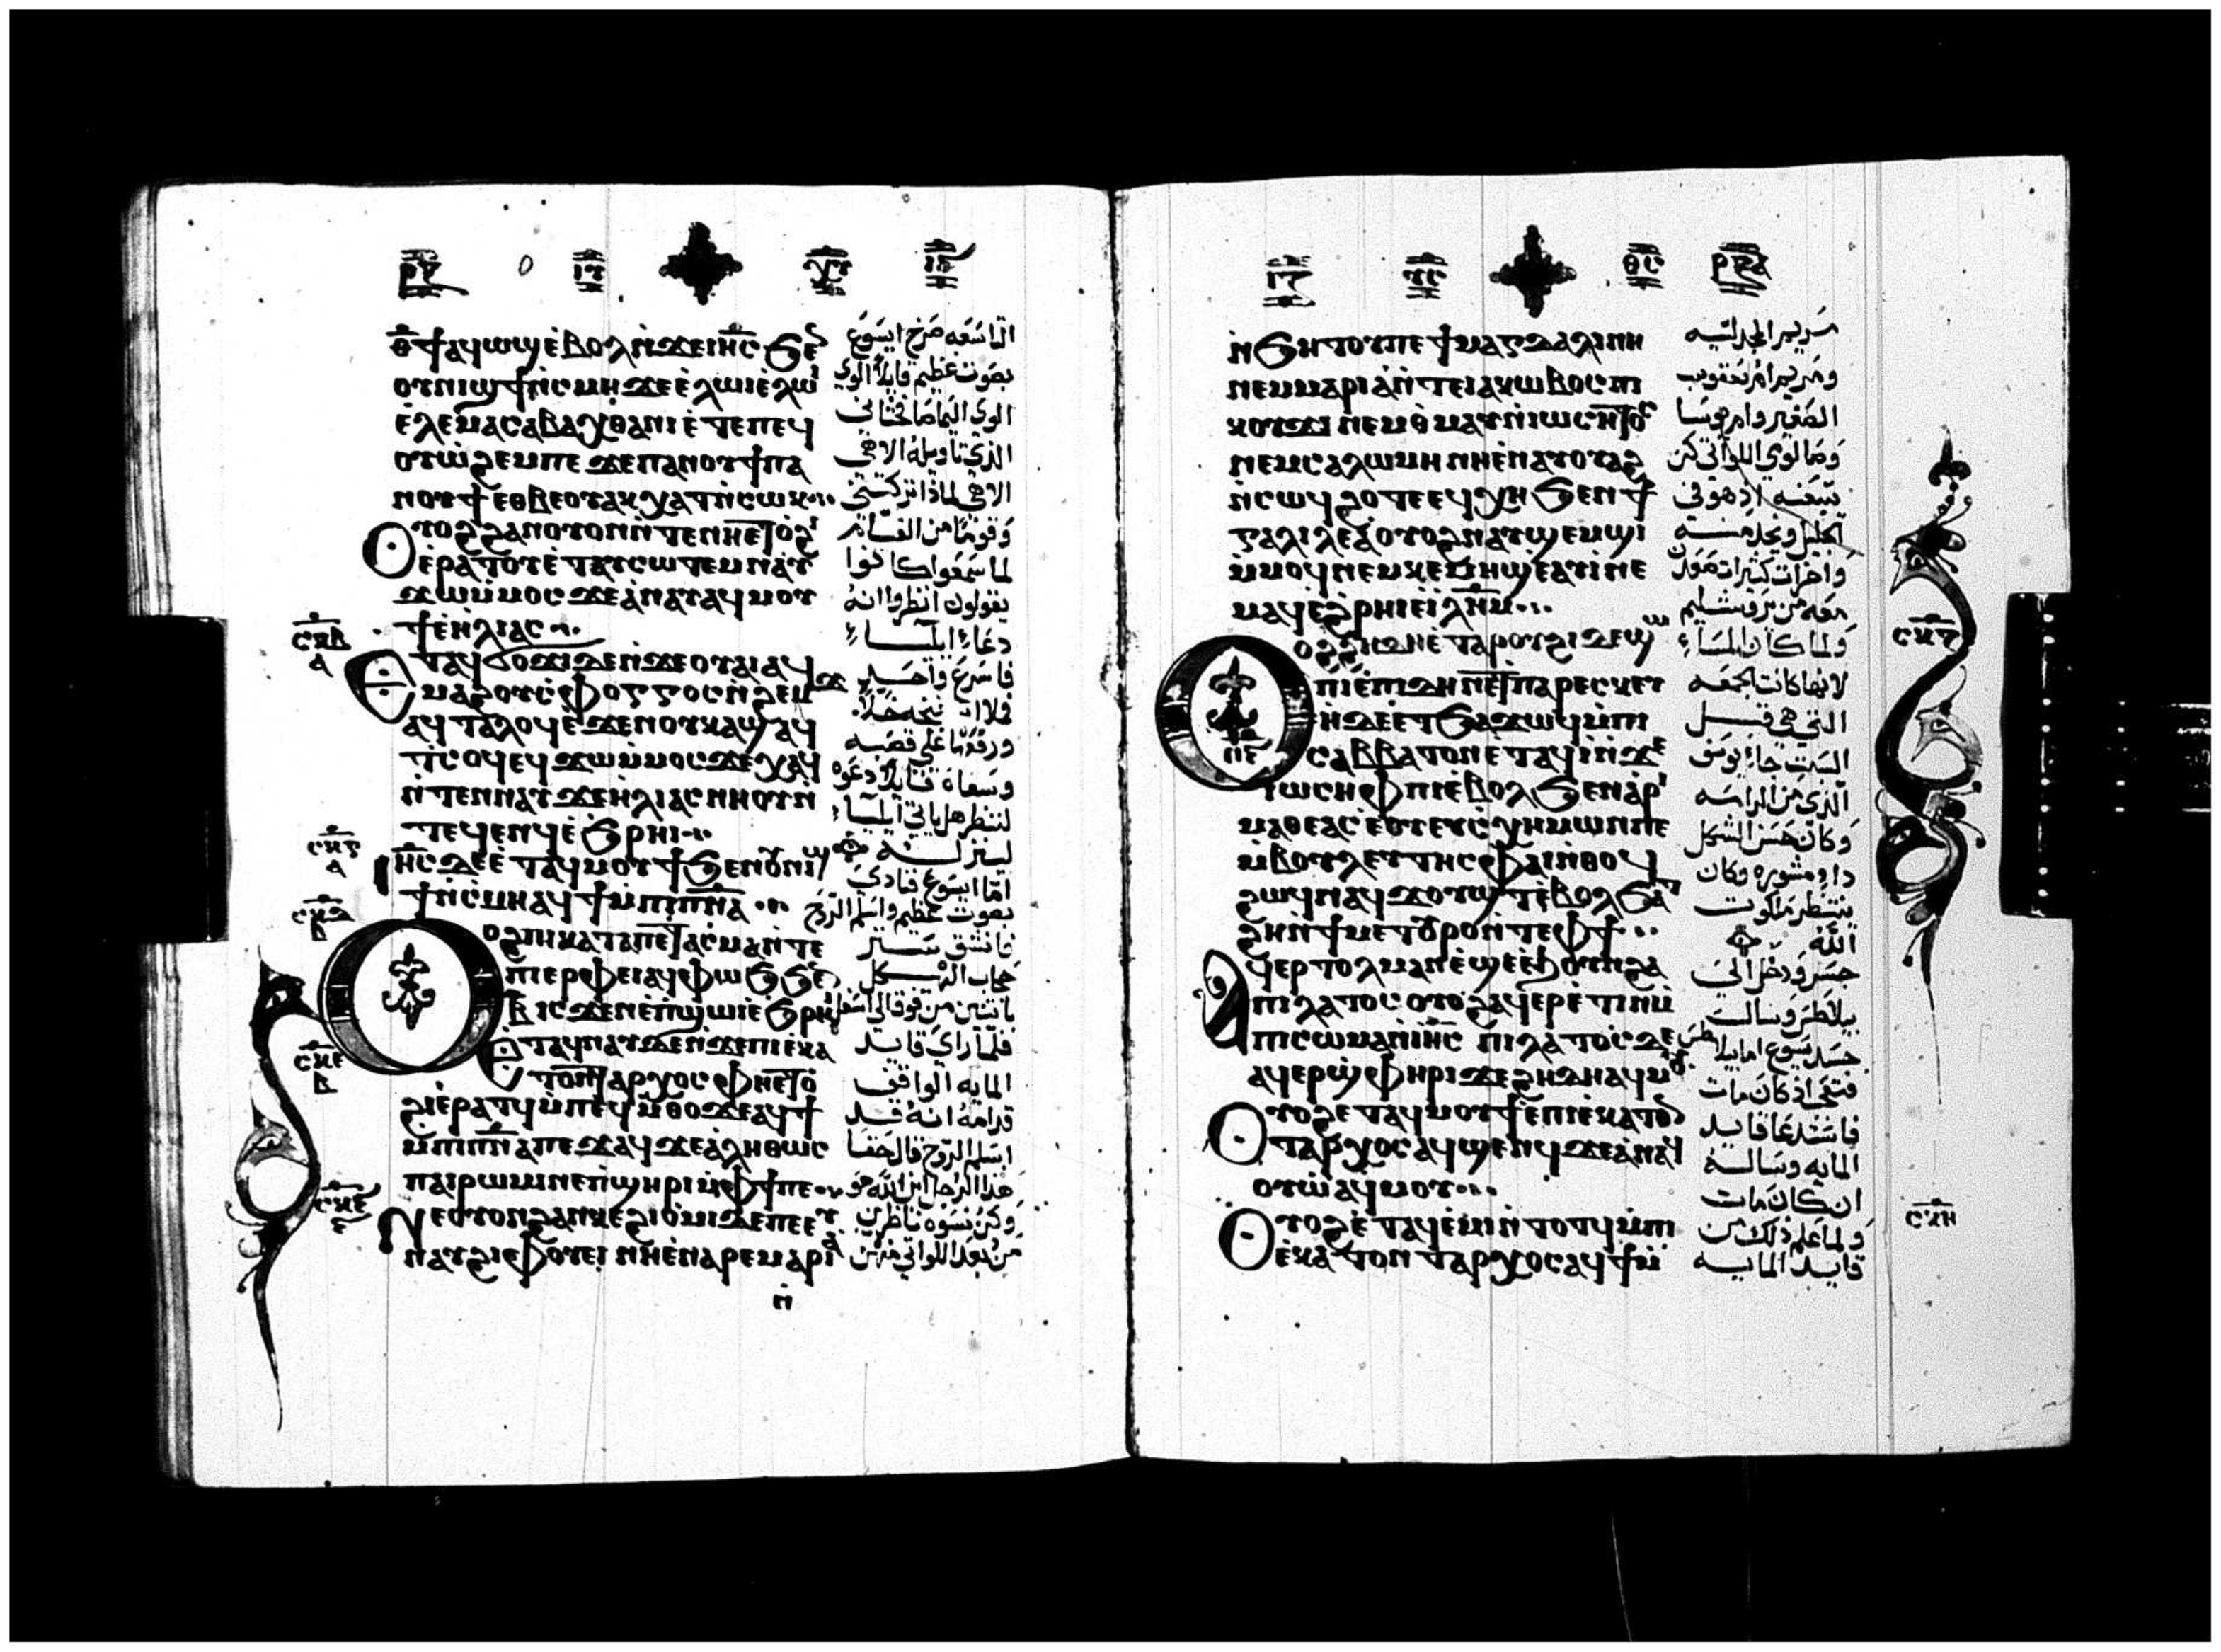 ⲓⲩ ⲭⲩ
ⲑ̄ϯⲁϥⲱϣⲉⲃⲟⲗⲛ̇ϫⲉⲓⲏ̄ⲥϧⲉⲛ
ⲟⲩⲛⲓϣϯⲛ̇ⲥⲙⲏϫⲉⲉ̇ⲗⲱⲓⲉ̇ⲗⲱⲓ
ⲉ̇ⲗⲉⲙⲁⲥⲁⲃⲁⲭⲑⲁⲛⲓⲉ̇ⲧⲉⲡⲉϥ
ⲟⲩⲱ̇ϩⲉⲙⲡⲉϫⲉⲡⲁⲛⲟⲩϯⲡⲁ
ⲛⲟⲩϯⲉⲑⲃⲉⲟⲩⲁⲕⲭⲁⲧⲛ̇ⲥⲱⲕ
ⲟⲩⲟϩϩⲁⲛⲟⲩⲟⲛⲛ̇ⲧⲉⲛⲏⲉⲧⲟ̇ϩⲓ
ⲉ̇ⲣⲁⲧⲟⲩⲉ̇ⲧⲁⲩⲥⲱⲧⲉⲙⲛⲁⲩ
ϫⲱⲙ̇ⲙⲟⲥϫⲉⲁ̇ⲛⲁⲩⲁϥⲙⲟⲩ
ϯⲉ̇ⲏⲗⲓⲁⲥ
ⲥⲕⲃ ⲁ
ⲉⲧⲁϥϭⲟϫⲓϫⲉⲛ̇ϫⲉⲟⲩⲁⲓⲁϥ
ⲙⲁϩⲟⲩⲥ̇ⲫⲟⲅⲅⲟⲥⲛ̇ϩⲉⲙϫ
ⲁϥⲧⲁⲗⲟϥⲉ̇ϫⲉⲛⲟⲩⲕⲁϣⲁϥ
ⲧⲥⲟϥⲉϥϫⲱⲙ̇ⲙⲟⲥϫⲉⲭⲁϥ
ⲛ̇ⲧⲉⲛⲛⲁⲩϫⲉⲏ̇ⲗⲓⲁⲥⲛⲏⲟⲩⲛ̇
ⲧⲉϥⲉⲛϥⲉ̇ϧⲣⲏⲓ
ⲥⲕⲅ ⲁ
ⲓⲏ̄ⲥϫⲉⲉ̇ⲧⲁϥⲙⲟⲩϯϧⲉⲛⲟⲩⲛⲓϣ
ϯⲛ̇ⲥⲙⲏⲁϥϯⲙ̇ⲡⲓⲡ̄ⲛ̄ⲁ
ⲥⲕⲇ ⲃ
ⲟⲩⲟϩⲡⲓⲕⲁⲧⲁⲡⲉⲧⲁⲥⲙⲁⲛ̇ⲧⲉ
ⲡⲓⲉⲣⲫⲉⲓⲁϥⲫⲱϧϧⲉⲛ
ⲃ̄ⲓⲥϫⲉⲛⲉ̇ⲡϣⲱⲓⲉ̇ϧⲣⲏⲓ
ⲥⲕⲉ ⲃ
ⲉⲧⲁϥⲛⲁⲩϫⲉⲛ̇ϫⲉⲡⲓⲉ̇ⲕⲁ
ⲧⲟⲛⲧⲁⲣⲭⲟⲥⲫⲏⲉⲧⲟ̇
ϩⲓⲉ̇ⲣⲁⲧϥⲙ̇ⲡⲉϥⲙ̇ⲑⲟϫⲉⲁϥϯ
ⲙ̇ⲡⲓⲡ̄ⲛ̄ⲁⲡⲉϫⲁϥϫⲉⲁ̇ⲗⲏⲑⲱⲥ
ⲡⲁⲓⲣⲱⲙⲓⲛⲉⲡ̇ϣⲏⲣⲓⲙ̇ⲫϯⲡⲉ
ⲛⲉⲟⲩⲟⲛϩⲁⲛⲕⲉϩⲓⲟ̇ⲙⲓϫⲉⲡⲉⲉⲩ
ⲛⲁⲩϩⲓⲫⲟⲩⲉⲓⲛⲏⲉ̇ⲛⲁⲣⲉⲙⲁⲣⲓⲁ
ⲛ̇
التاسعه صرخ ايسوع
بصوت عظيم قايلا الوي
الوي اليما صافختاني
الذي تاويله الاهي
الاهي لماذا تركتني
وقوما من القيام
لما سمعوا كانوا
يقولون انظروا انه
دعاء ايلياء
فاسرع واحد
فملا اسفنجه خلا
ورفعها علي قصبه
وسقاه قايلا دعوه
لننظر هل ياتي ايلياء
لينزله
اما ايسوع فنادي
بصوت عظيم واسلم الروح
فانشق ستر
حجاب الهيكل
باثنتين من فوق الي اسفل
فلما راي قايد
المايه الواقف
قدامه انه قد
اسلم الروح قال حقا
هذا الرجل ابن الله هو
وكن نسوه ناظرين
من بعد اللواتي منهن
ⲩⲥ ⲑⲥ
ⲛ̇ϧⲏⲧⲟⲩⲡⲉϯⲙⲁⲅⲇⲁⲗⲓⲛⲏ
ⲛⲉⲙⲙⲁⲣⲓⲁⲛ̇ⲧⲉⲓⲁⲕⲱⲃⲟⲥⲡⲓ
ⲕⲟⲩϫⲓⲛⲉⲙⲑ̇ⲙⲁⲩⲛ̇ⲓⲱⲥⲏⲧⲟⲥ
ⲛⲉⲙⲥⲁⲗⲱⲙⲏⲛⲏⲉ̇ⲛⲁⲩⲟⲩⲁϩ
ⲛ̇ⲥⲱϥϩⲟⲧⲉⲉϥⲭⲏϧⲉⲛϯ
ⲅⲁⲗⲓⲗⲉⲁ̇ⲟⲩⲟϩⲛⲁⲩϣⲉⲙϣⲓ
ⲙ̇ⲙⲟϥⲛⲉⲙⲕⲉⲙⲏϣⲉⲁⲩⲓ̇ⲛⲉ
ⲙⲁϥⲉϩ̇ⲣⲏⲓⲉ̇ⲓ̈ⲗⲏ̄ⲙ
ⲥⲕⲍ
ⲟⲩⲟϩϩⲏⲇⲏⲉ̇ⲧⲁⲣⲟⲩϩⲓϫⲉϣⲱ
ⲡⲓⲉ̇ⲡⲓⲇⲏⲛⲉϯⲡⲁⲣⲉⲥⲕⲉⲩ
ⲏ̇ϫⲉⲉⲧϧⲁϫⲱϥⲙ̇ⲡⲓ
ⲥⲁⲃⲃⲁⲧⲟⲛⲉⲧⲁϥⲓ̇ⲛ̇ϫⲉ
ⲓⲱⲥⲏⲫⲡⲓⲉ̇ⲃⲟⲗϧⲉⲛⲁⲣⲓ
ⲙⲁⲑⲉⲁⲥⲉ̇ⲟⲩⲉⲩⲥⲭⲏⲙⲱⲛⲡⲉ
ⲙ̇ⲃⲟⲩⲗⲉⲩⲧⲏⲥⲫⲁⲓⲛ̇ⲑⲟϥ
ϩⲱϥⲛⲁϥϫⲟⲩϣⲧⲉ̇ⲃⲟⲗϧⲁ
ϩⲏⲛ̇ϯⲙⲉⲧⲟⲩⲣⲟⲛ̇ⲧⲉⲫϯ
ⲁϥⲉⲣⲧⲟⲗⲙⲁⲛⲉ̇ϣⲉⲉ̇ϧⲟⲩⲛϩⲁ
ⲡⲓⲗⲁⲧⲟⲥⲟⲩⲟϩⲁϥⲉⲣⲉ̇ⲧⲓⲛⲙ̇
ⲡⲓⲥⲱⲙⲁⲛ̇ⲓⲏ̄ⲥ ⲡⲓⲗⲁⲧⲟⲥϫⲉ
ⲁϥⲉⲣϣ̇ⲫⲏⲣⲓϫⲉϩⲏⲇⲏⲁϥⲙⲟⲩ
ⲟⲩⲟϩⲉⲧⲁϥⲙⲟⲩϯⲉ̇ⲡⲓⲉ̇ⲕⲁⲧⲟⲛ
ⲧⲁⲣⲭⲟⲥⲁϥϣⲉⲛϥϫⲉⲁ̇ⲛⲁϥ
ⲟⲩⲱ̇ⲁϥⲙⲟⲩ
ⲥⲕⲏ
ⲟⲩⲟϩⲉ̇ⲧⲁϥⲉ̇ⲙⲓⲛ̇ⲧⲟⲧϥⲙ̇ⲡⲓ
ⲉ̇ⲕⲁⲧⲟⲛⲧⲁⲣⲭⲟⲥⲁϥϯⲙ̇
مريم المجدليه
ومريم ام يعقوب
الصغير وام يوسا
وصالومي اللواتي كن
يتبعنه اذ هو في
الجليل ويخدمنه
واخرات كثيرات صعدن
معه من يروشليم
ولما كان المساء
لانها كانت الجمعه
التي هي قبل
السبت جاء يوسف
الذي من الرامه
وكان حسن الشكل
ذا مشوره وكان
ينتظر ملكوت
الله
جسر ودخل الي
بيلاطس وسال
جسد يسوع اما بيلاطس
فتعجب اذ كان مات
فاستدعا قايد
المايه وساله
ان كان مات
ولما علم ذلك من
قايد المايه